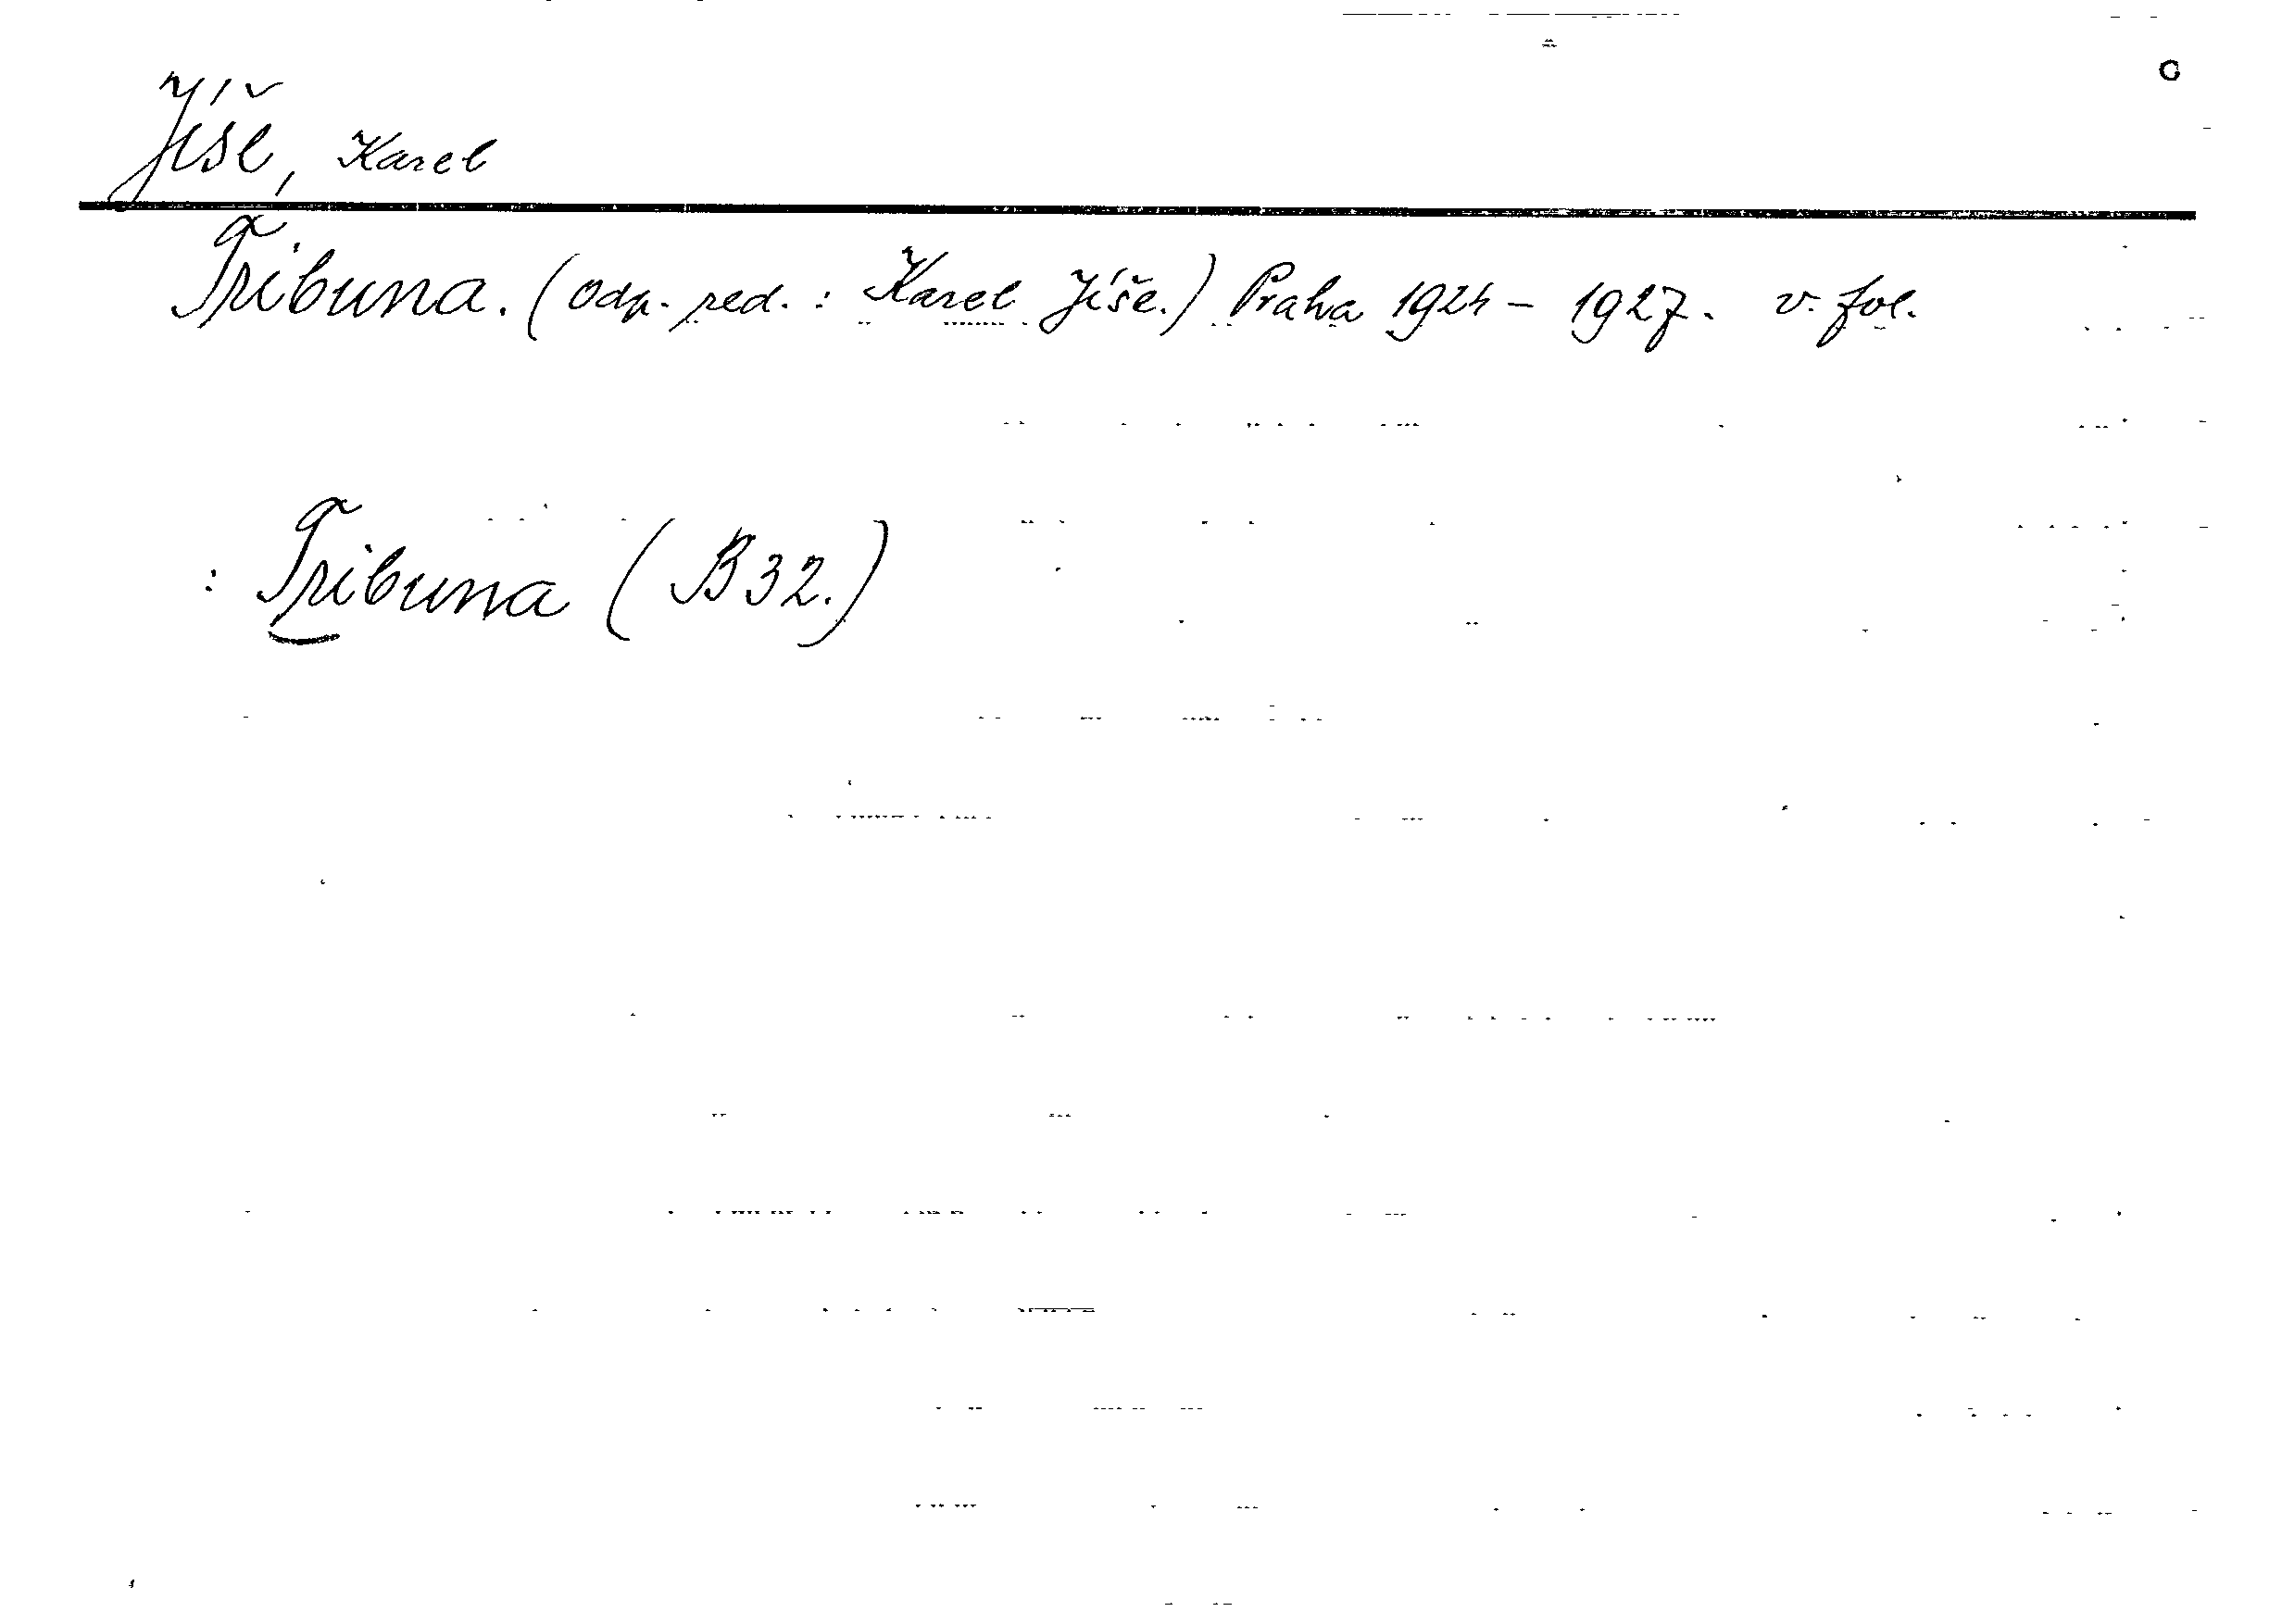 Jíše, Karel
Tribuna. (odp. red. : Karel Jíše.) Praha 1924 – 1927. v. fol.
: Tribuna (B 32.)